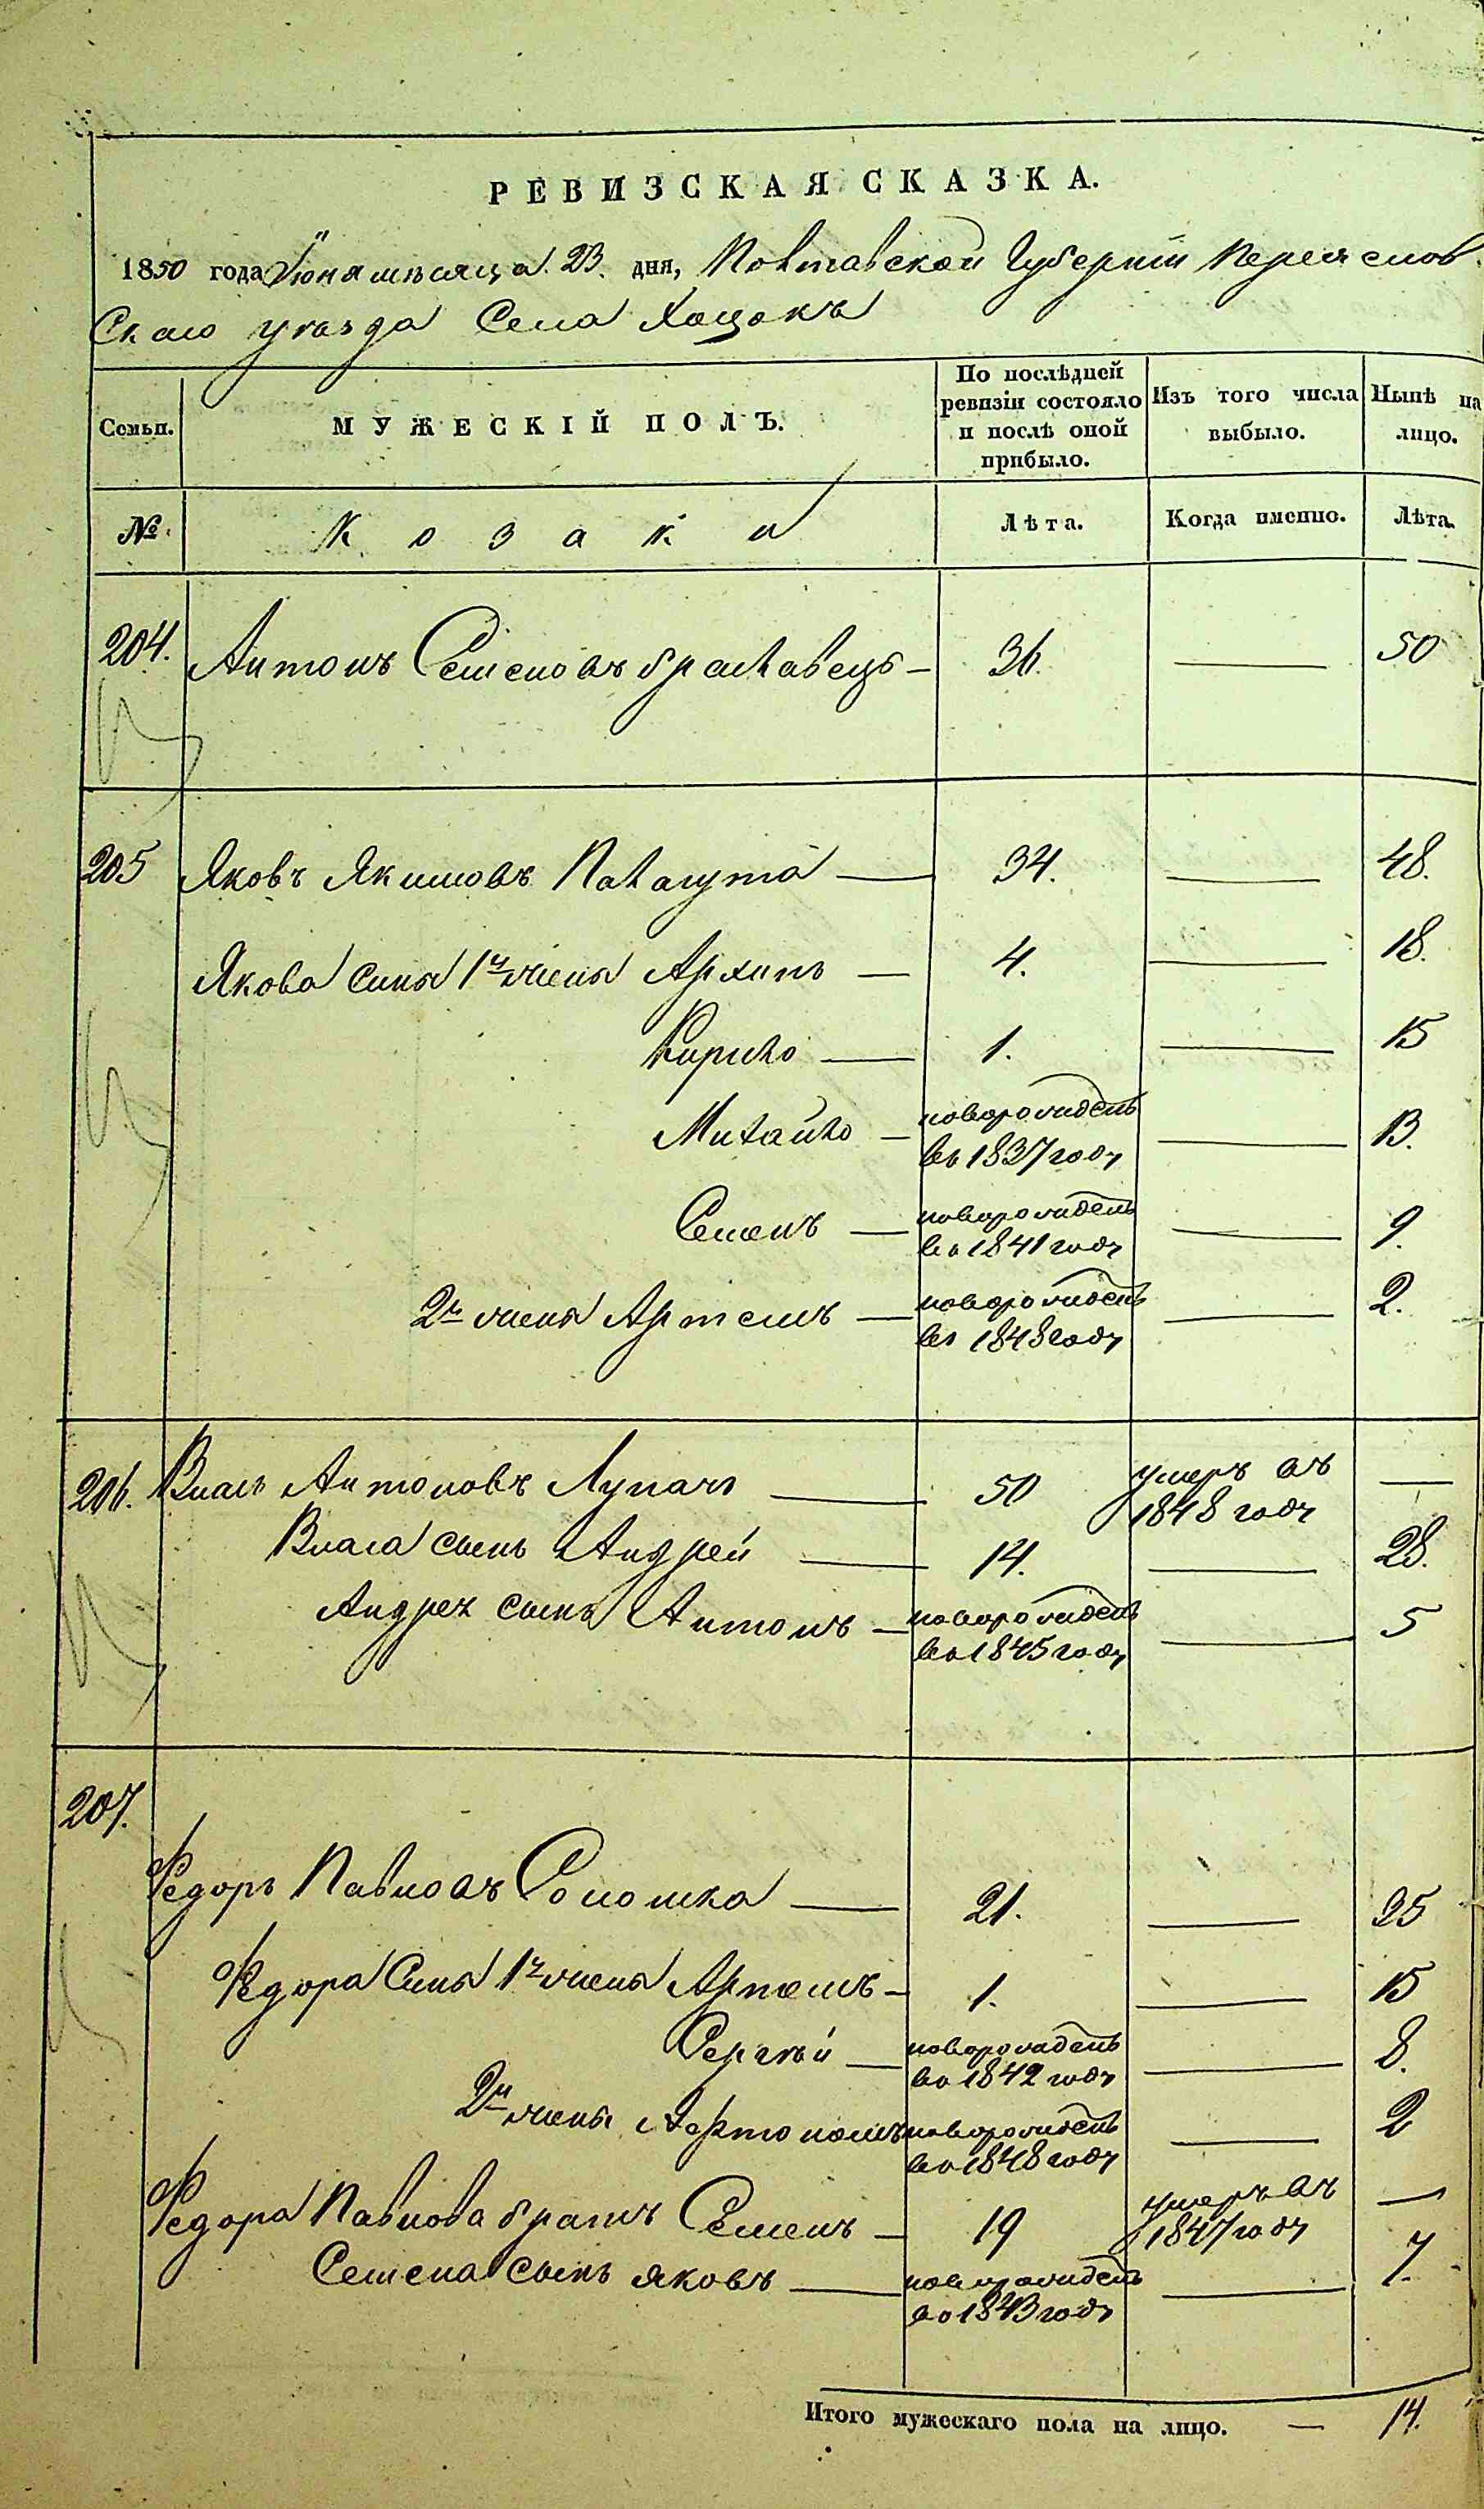 РЕВИЗСКАЯ СКАЗКА.
1850 года Июня мѣсяца 23. дня, Полтавской Губерніи Переяслов
Скаго уѣзда Села Хоцокъ
Семьи. МУЖЕСКІЙ ПОЛЪ. По послѣдней ревизіи состояло и послѣ оной прибыло. Изъ того числа выбыло. Нынѣ на лицо.
№ Козаки Лѣта. Когда именно. Лѣта.
204. Антонъ Семеновъ браславецъ — 36. — 50
205 Яковъ Якимовъ Палагута — 34. — 48.
Якова Сины 1й жены Архипъ — 4. — 18.
Кирило — 1. — 15
Михайло — новорожденъ — 13.
въ 1837 году
Семенъ — новорожденъ — 9.
въ 1841 году
2й жены Артемъ — новорожденъ — 2.
въ 1848 году
206. Власъ Антоновъ Лупачъ — 50 умеръ въ —
1848 году
Власа сынъ Андрей — 14. — 28.
Андрея сынъ Антонъ — новорожденъ — 5
въ 1845 году
207.
Федоръ Павловъ Соломка — 21. — 35
Федора Сины 1й жены Артемъ — 1. — 15
Сергѣй — новорожденъ — 8.
въ 1842 году
2й жены новорожденъ — 2
въ 1848 году
Федора Павлова братъ Семенъ — 19 умеръ въ —
1847 году
Семена сынъ яковъ — новорожденъ — 7.
въ 1843 году
Итого мужескаго пола на лицо. — 14.